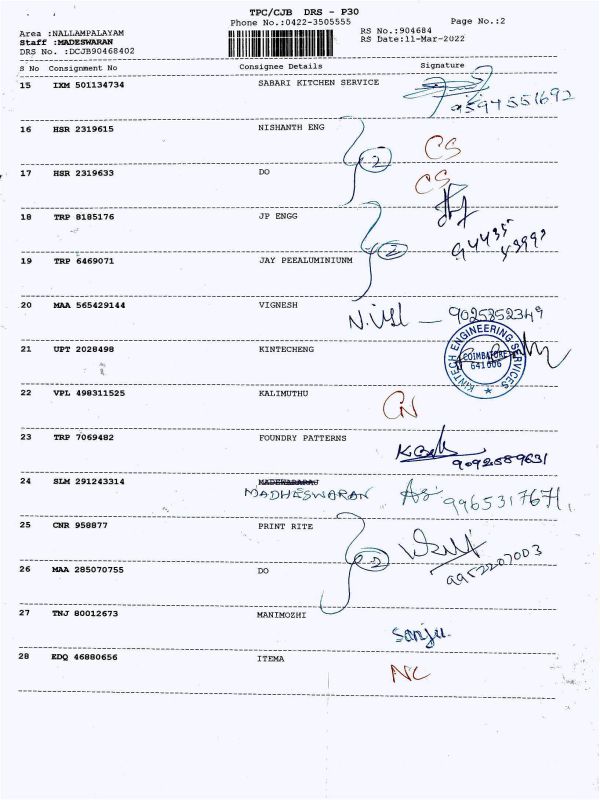 TPC/CJB DRS - P30
Phone No.:0422-3505555 Page No.:2
Area :NALLAMPALAYAM RS No.:904684
Staff :MADESWARAN RS Date:11-Mar-2022
DRS No. :DCJB90468402
S No Consignment No Consignee Details Signature
15 IXM 501134734 SABARI KITCHEN SERVICE
9594551692
16 HSR 2319615 NISHANTH ENG CS
2
17 HSR 2319633 DO CS
18 TRP 8185176 JP ENGG
94435
2
19 TRP 6469071 JAY PEEALUMINIUNM
20 MAA 565429144 VIGNESH
9025852349
21 UPT 2028498 KINTECHENG
KINTECH ENGINEERING SERVICES
COIMBATORE
641 006
22 VPL 498311525 KALIMUTHU CN
23 TRP 7069482 FOUNDRY PATTERNS
9092589631
24 SLM 291243314
MADHESWARAN 9965317671
25 CNR 958877 PRINT RITE
2
26 MAA 285070755 DO
27 TNJ 80012673 MANIMOZHI
Sanju
28 EDQ 46880656 ITEMA
NC